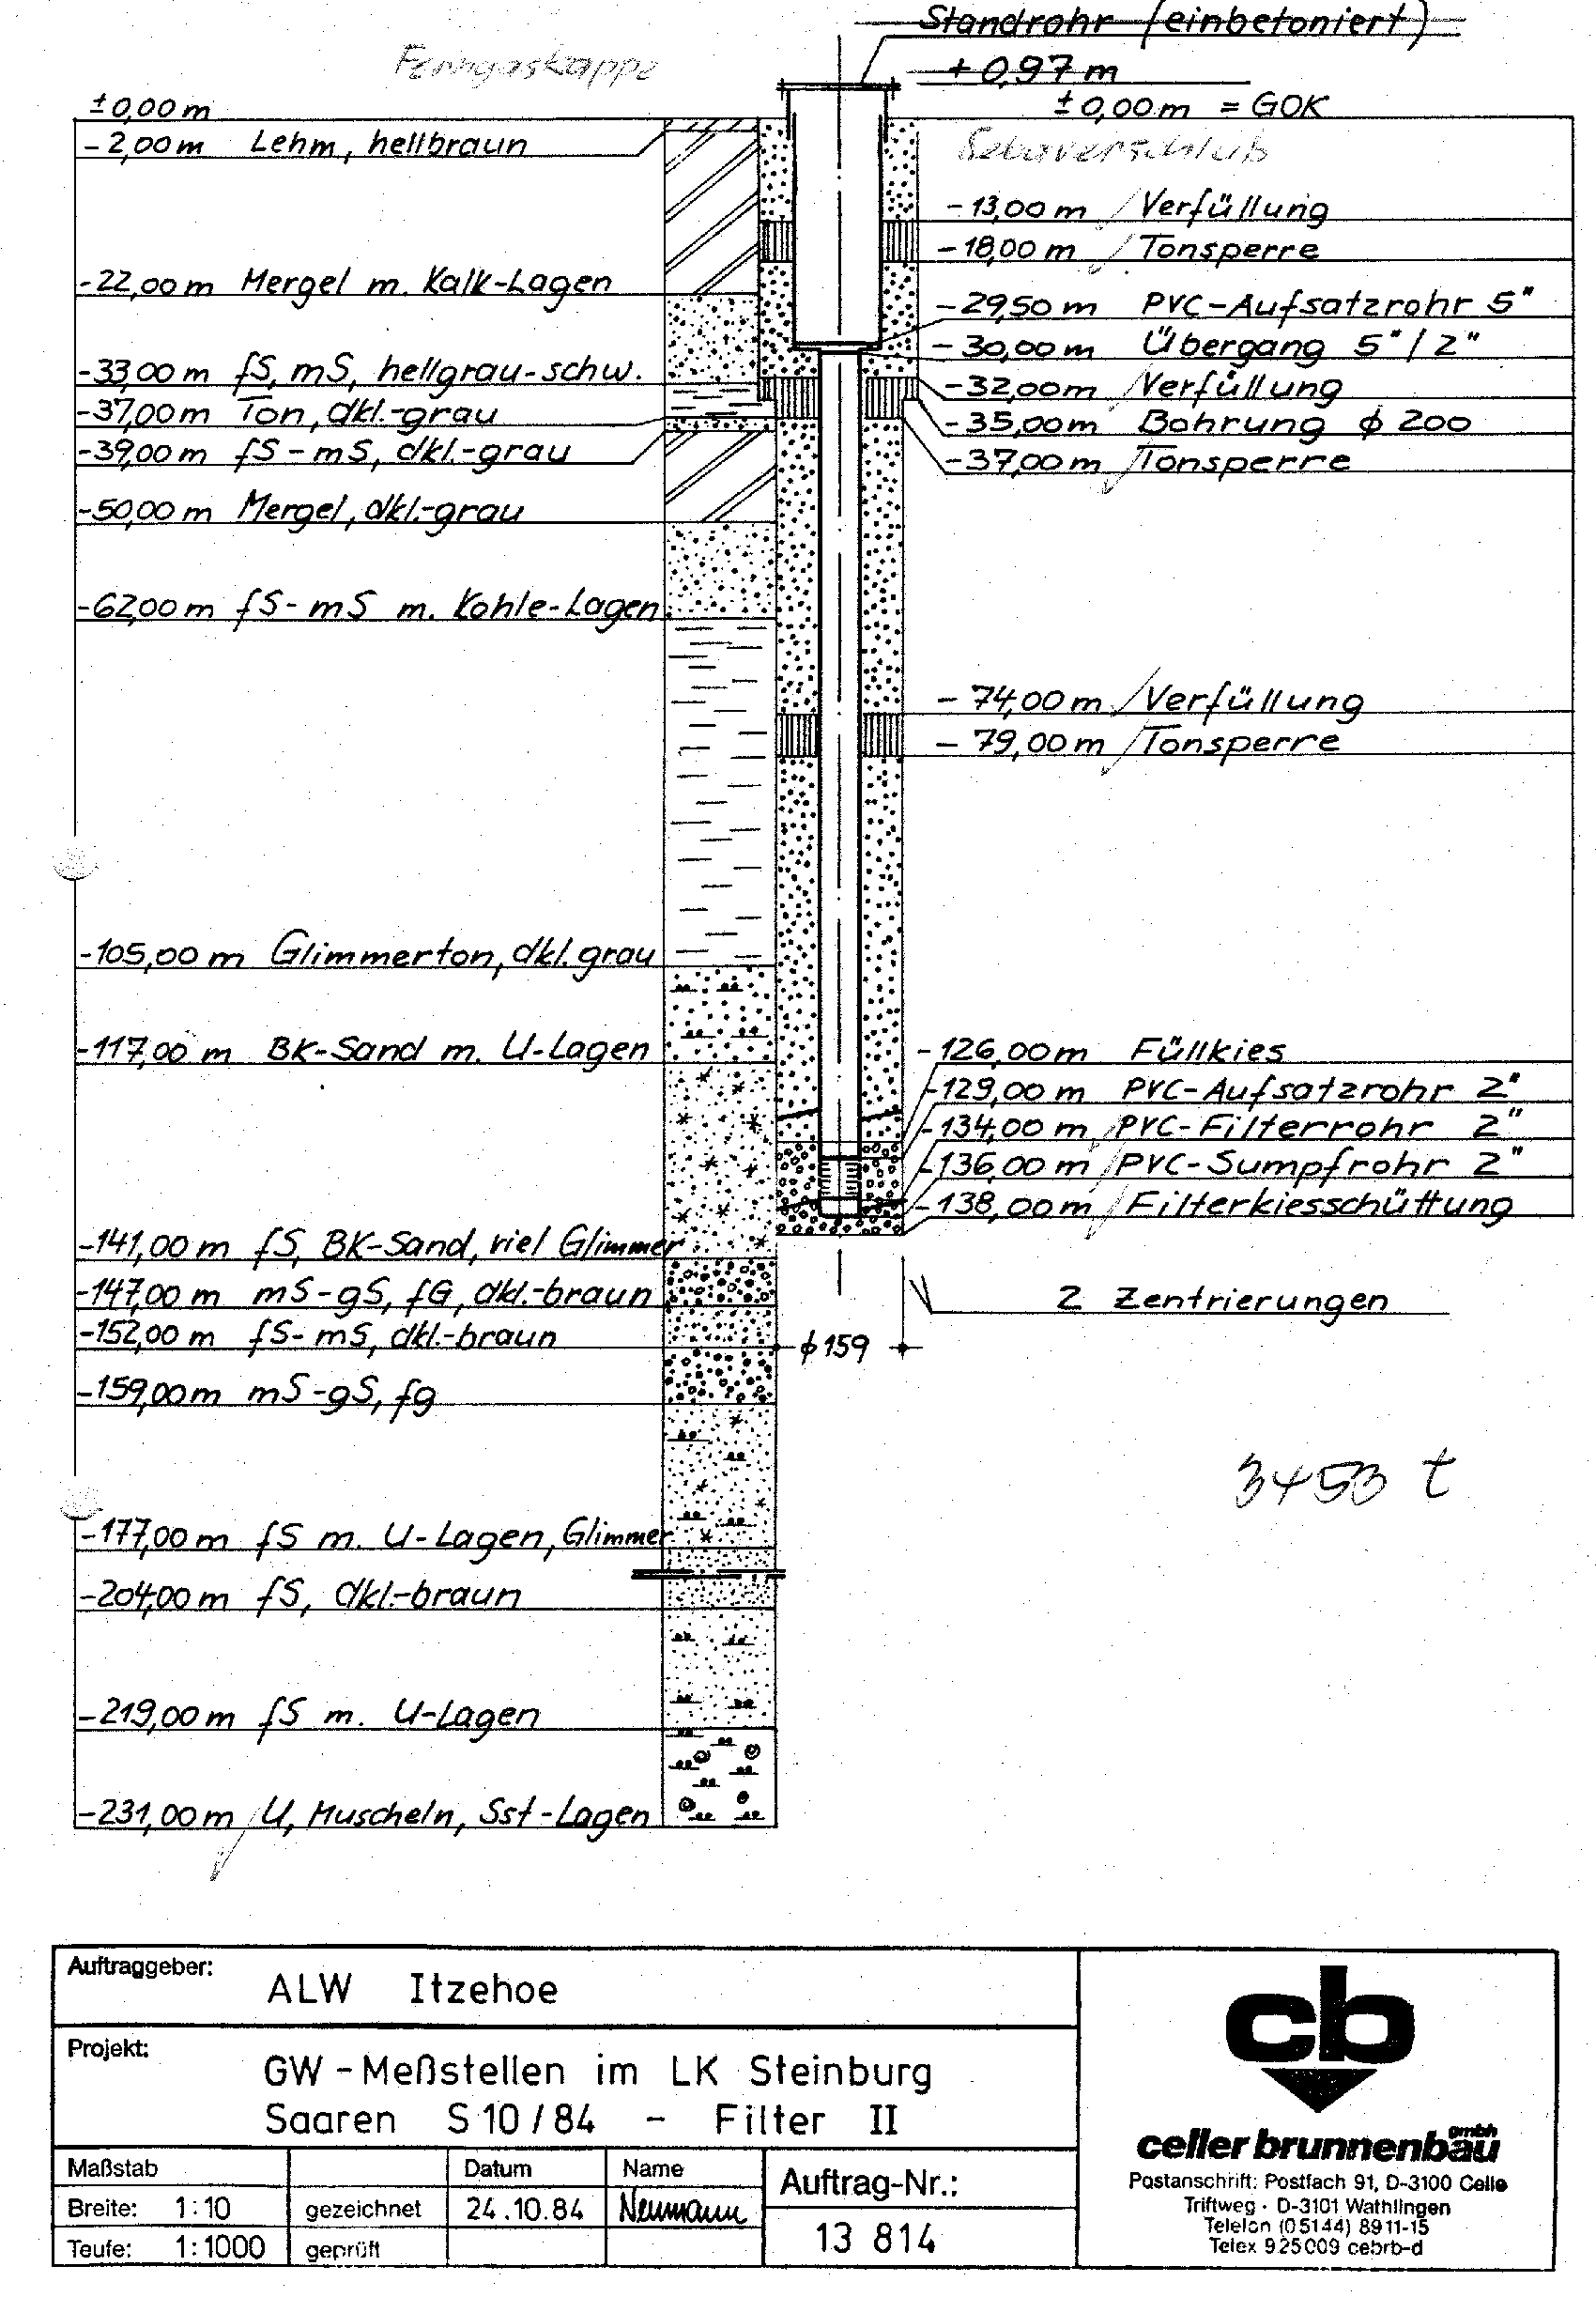 Standrohr (einbetoniert)
+ 0,97 m
Ferngaskappe
± 0,00 m
± 0,00 m = GOK
Sebaverschluß
- 2,00 m Lehm, hellbraun
- 22,00 m Mergel m. Kalk-Lagen
- 33,00 m fS, mS, hellgrau-schw.
- 37,00 m Ton, dkl.-grau
- 39,00 m fS - mS, dkl.-grau
- 50,00 m Mergel, dkl.-grau
- 62,00 m fS - mS m. Kohle-Lagen
- 105,00 m Glimmerton, dkl. grau
- 117,00 m BK-Sand m. U-Lagen
- 141,00 m fS, BK-Sand, viel Glimmer
- 147,00 m mS - gS, fG, dkl.-braun
- 152,00 m fS - mS, dkl.-braun
- 159,00 m mS - gS, fg
- 177,00 m fS m. U-Lagen, Glimmer
- 204,00 m fS, dkl.-braun
- 219,00 m fS m. U-Lagen
- 231,00 m U, Muscheln, Sst-Lagen
- 13,00 m Verfüllung
- 18,00 m Tonsperre
- 29,50 m PVC-Aufsatzrohr 5"
- 30,00 m Übergang 5" / 2"
- 32,00 m Verfüllung
- 35,00 m Bohrung ϕ 200
- 37,00 m Tonsperre
- 74,00 m Verfüllung
- 79,00 m Tonsperre
- 126,00 m Füllkies
- 129,00 m PVC-Aufsatzrohr 2"
- 134,00 m PVC-Filterrohr 2"
- 136,00 m PVC-Sumpfrohr 2"
- 138,00 m Filterkiesschüttung
2 Zentrierungen
ϕ 159
3453 t
Auftraggeber: ALW Itzehoe
Projekt: GW - Meßstellen im LK Steinburg
Saaren S 10 / 84 - Filter II
Maßstab Datum Name Auftrag-Nr.:
Breite: 1:10 gezeichnet 24.10.84 Neumann
Teufe: 1:1000 geprüft 13 814
cb
celler brunnenbau gmbh
Postanschrift: Postfach 91, D-3100 Celle
Triftweg · D-3101 Wathlingen
Telefon (0 51 44) 89 11-15
Telex 9 25 009 cebrb-d